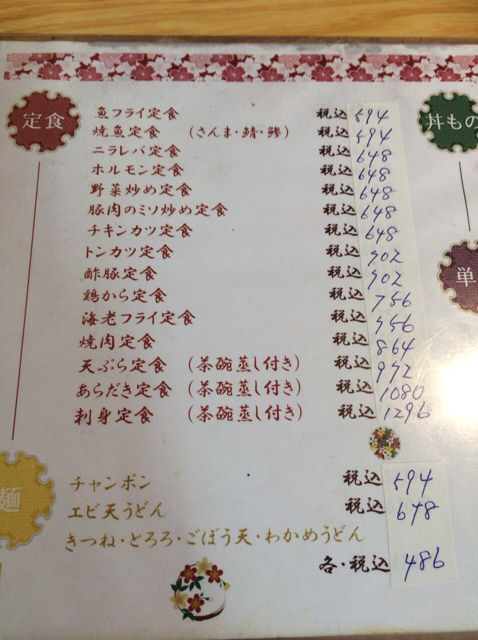 定食
魚フライ定食 税込 594
焼魚定食 (さんま・鯖・鯵) 税込 594
ニラレバ定食 税込 648
ホルモン定食 税込 648
野菜炒め定食 税込 648
豚肉のミソ炒め定食 税込 648
チキンカツ定食 税込 648
トンカツ定食 税込 702
酢豚定食 税込 702
鶏から定食 税込 756
海老フライ定食 税込 756
焼肉定食 税込 864
天ぷら定食 (茶碗蒸し付き) 税込 972
あらだき定食 (茶碗蒸し付き) 税込 1080
刺身定食 (茶碗蒸し付き) 税込 1296
丼もの
単
麺
チャンポン 税込 594
エビ天うどん 税込 648
きつね・とろろ・ごぼう天・わかめうどん
各・税込 486